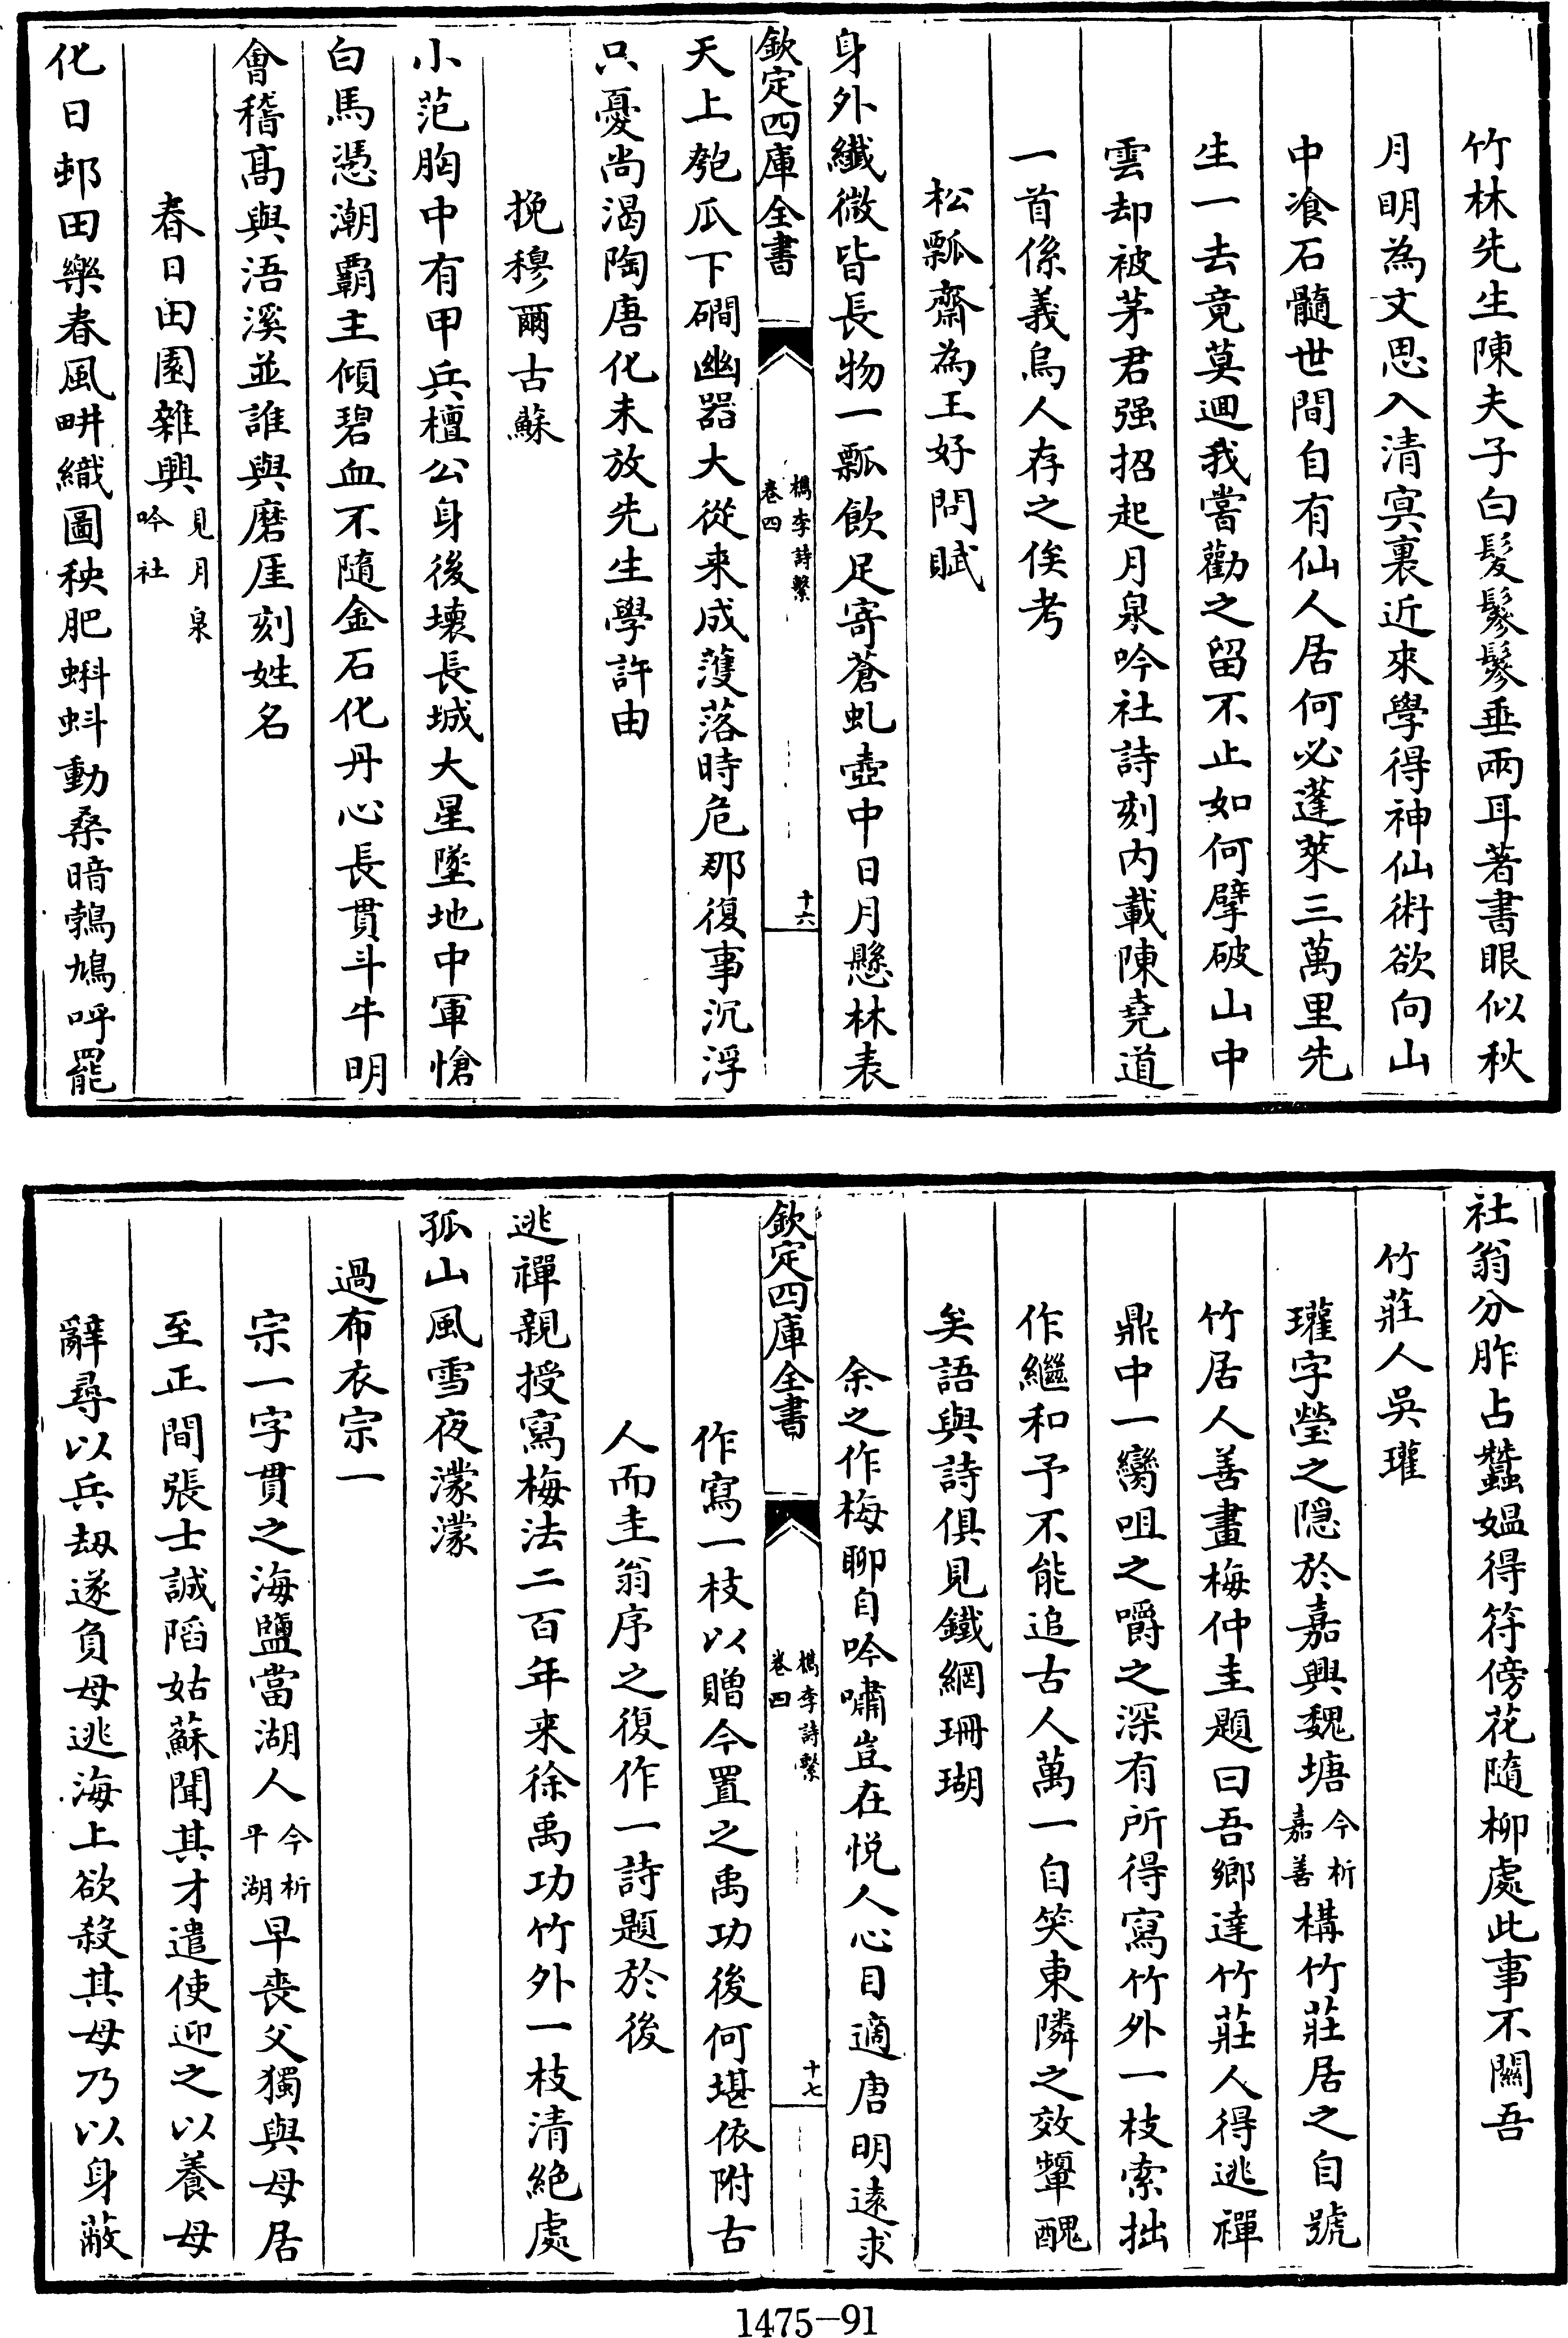 竹林先生陳夫子白髮鬖鬖垂兩耳著書眼似秋
月明為文思入清㝠裏近來學得神仙術欲向山
中飡石髓世間自有仙人居何必蓬萊三萬里先
生一去竟莫迴我嘗勸之留不止如何擘破山中
雲却被茅君强招起月泉吟社詩刻内載陳堯道
一首係義烏人存之俟考
松瓢齋為王好問賦
身外纖微皆長物一瓢飲足寄蒼虬壺中日月懸林表
欽定四庫全書
檇李詩繫
卷四
十六
天上匏瓜下磵幽器大從来成濩落時危那復事沉浮
只憂尚渴陶唐化未放先生學許由
挽穆爾古蘇
小范胸中有甲兵檀公身後壞長城大星墜地中軍愴
白馬憑潮霸主傾碧血不隨金石化丹心長貫斗牛明
會稽髙與浯溪並誰與磨厓刻姓名
春日田園雜興見月泉吟社
化日邨田樂春風畊織圖秧肥蝌蚪動桑暗鵓鳩呼罷
社翁分胙占蠶媪得符傍花隨柳處此事不關吾
竹莊人吳瓘
瓘字瑩之隠於嘉興魏塘今析嘉善構竹莊居之自號
竹居人善畫梅仲圭題曰吾鄉達竹莊人得逃禪
鼎中一臠咀之嚼之深有所得寫竹外一枝索拙
作繼和予不能追古人萬一自笑東隣之效顰醜
矣語與詩俱見鐵網珊瑚
余之作梅聊自吟嘯豈在悦人心目適唐明逺求
欽定四庫全書
檇李詩繫
卷四
十七
作寫一枝以贈今置之禹功後何堪依附古
人而圭翁序之復作一詩題於後
逃禪親授寫梅法二百年来徐禹功竹外一枝清絶處
孤山風雪夜濛濛
過布衣宗一
宗一字貫之海鹽當湖人今析平湖早喪父獨與母居
至正間張士誠陷姑蘇聞其才遣使迎之以養母
辭尋以兵刼遂負母逃海上欲殺其母乃以身蔽
1475-91